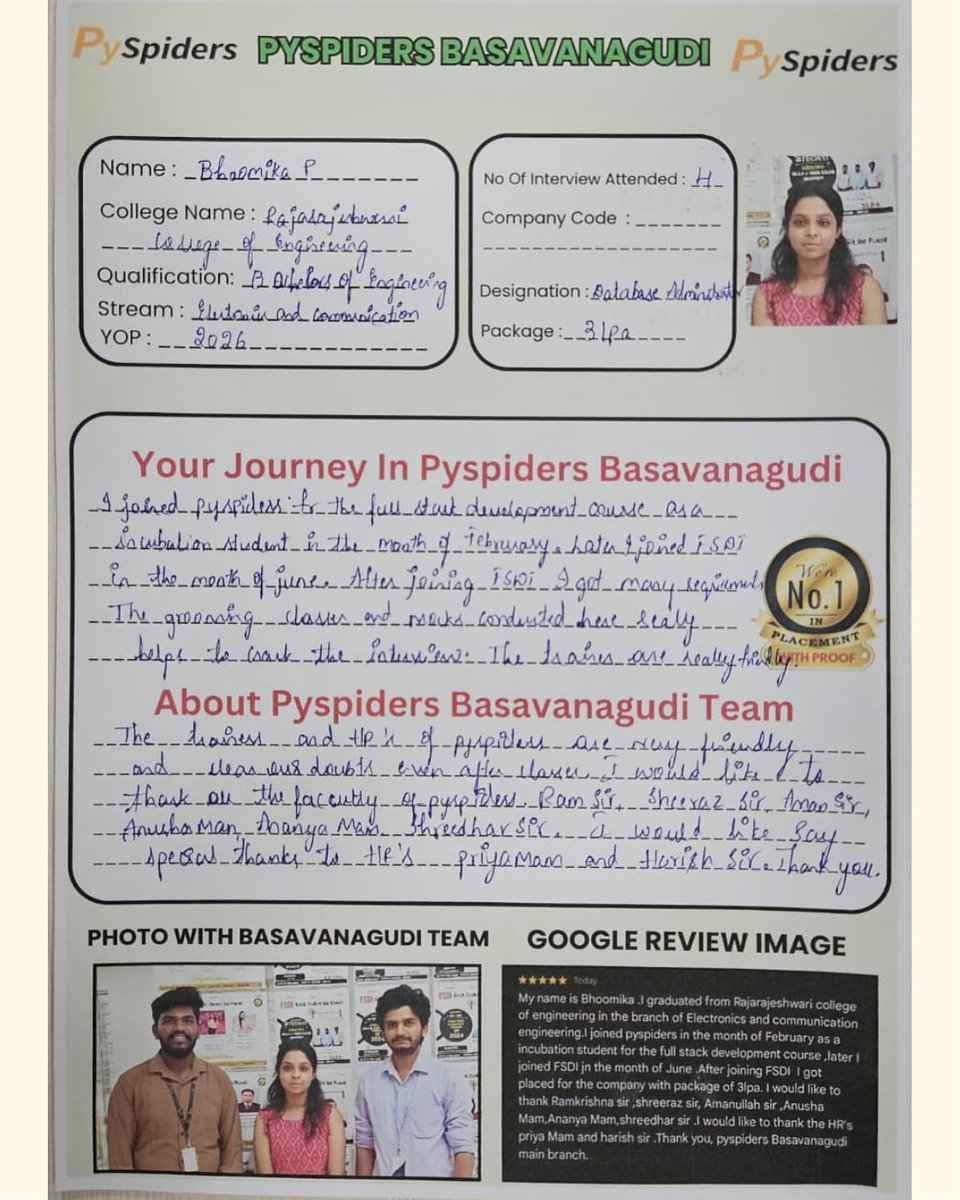 PySpiders PYSPIDERS BASAVANAGUDI PySpiders
Name : Bhoomika P
College Name : Rajarajeshwari
College of Engineering
Qualification: Bachelors of Engineering
Stream : and communication
YOP : 2026
No Of Interview Attended : 4
Company Code :
Designation : Database Administrator
Package : 3lpa
Your Journey In Pyspiders Basavanagudi
I joined pyspiders for the full stack development course as a
incubation student in the month of february. Later I joined FSDI
in the month of june. After joining FSDI I got many requirements
The grooming classes and mocks conducted here really
helps to crack the interview. The trainers are really friendly.
We're
No.1
IN
PLACEMENT
WITH PROOF
About Pyspiders Basavanagudi Team
The trainers and HR's of pyspiders are very friendly
and clear our doubts even after classes I would like to
thank all the faccutly of pyspiders. Ram Sir, Sheeraz Sir, Aman Sir,
Anusha Mam, Ananya Mam Shreedhar Sir. I would like Say
special thanks to HR's priya Mam and Harish Sir. Thank you.
PHOTO WITH BASAVANAGUDI TEAM
GOOGLE REVIEW IMAGE
★★★★★ Today
My name is Bhoomika .I graduated from Rajarajeshwari college
of engineering in the branch of Electronics and communication
engineering.I joined pyspiders in the month of February as a
incubation student for the full stack development course ,later I
joined FSDI jn the month of June .After joining FSDI I got
placed for the company with package of 3lpa. I would like to
thank Ramkrishna sir ,shreeraz sir, Amanullah sir ,Anusha
Mam,Ananya Mam,shreedhar sir .I would like to thank the HR's
priya Mam and harish sir .Thank you, pyspiders Basavanagudi
main branch.